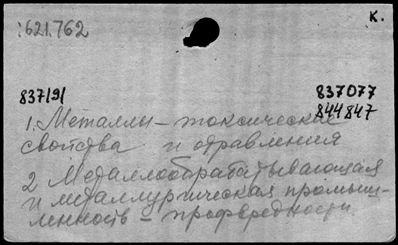 К.
:621.762
837191
837077
844847
1. Металлы – токсические
свойства и отравления
2 Металлообрабатывающая
и металлургическая промыш-
ленность – профвредности.